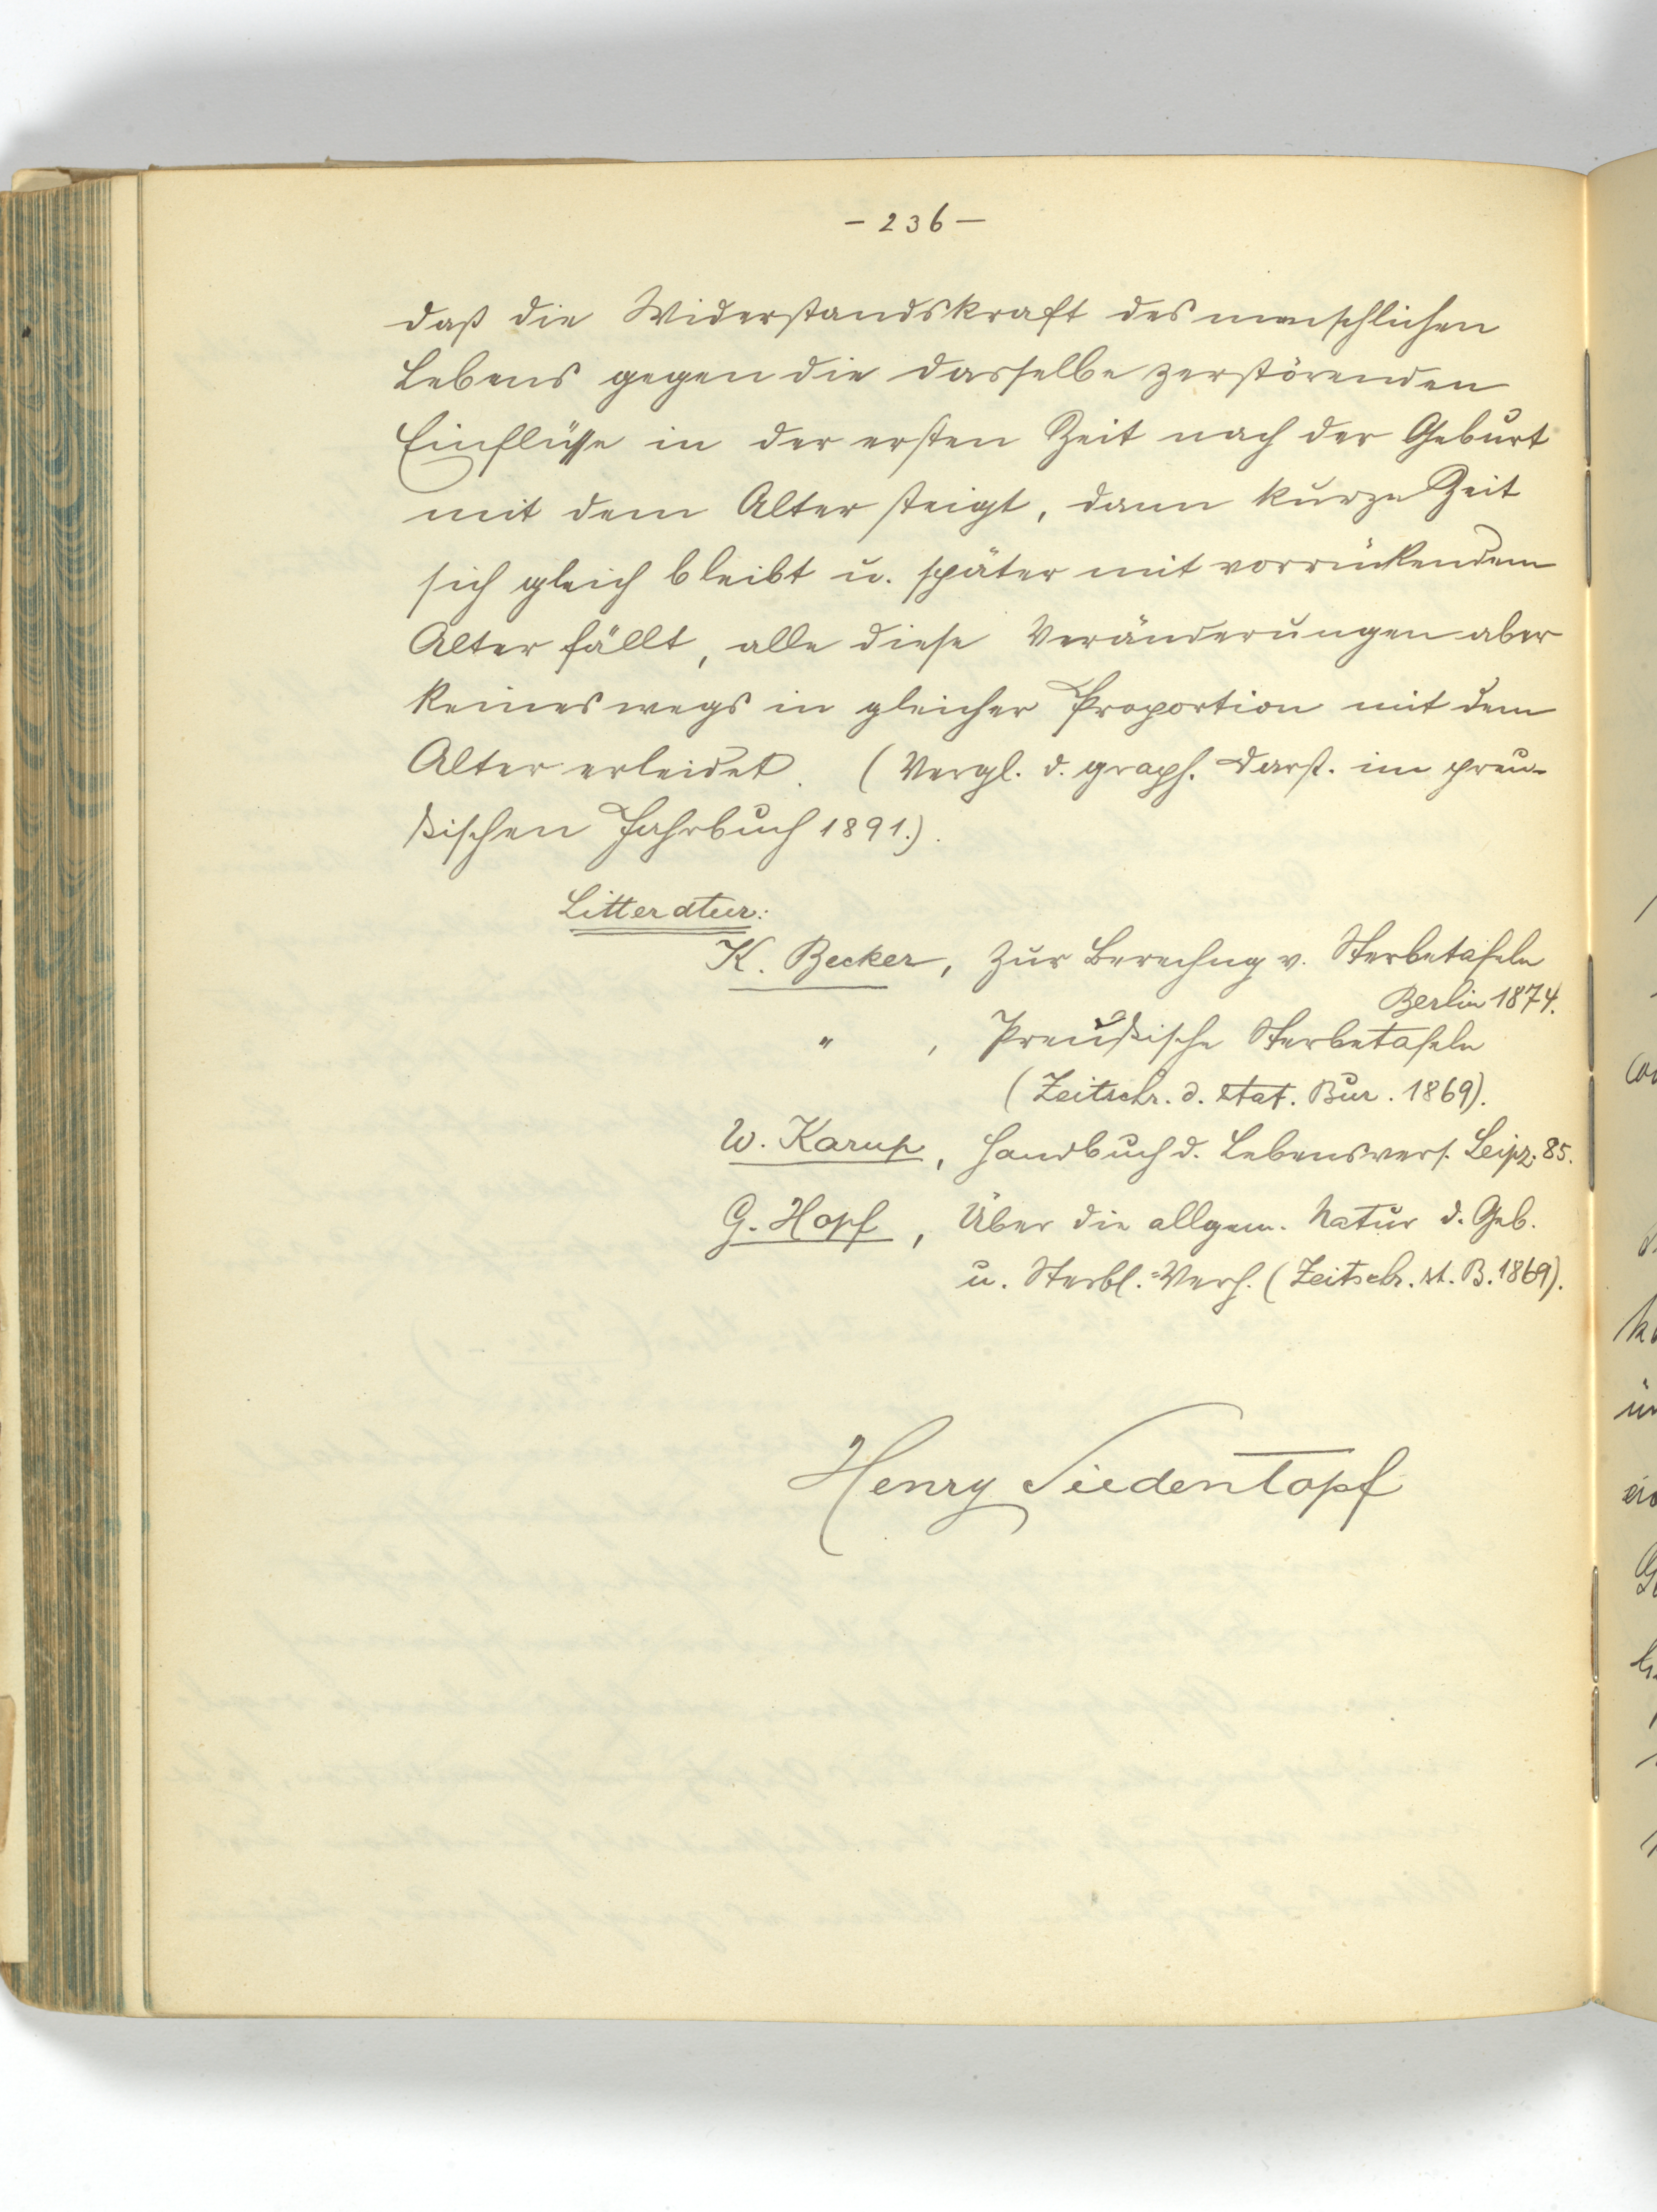 - 236 -
daß die Widerstandskraft des menschlichen
Lebens gegen die dasselbe zerstörenden
Einflüsse in der ersten Zeit nach der Geburt
mit dem Alter steigt, dann kurze Zeit
sich gleich bleibt u. später mit vorrückendem
Alter fällt, alle diese Veränderungen aber
keineswegs in gleicher Proportion mit dem
Alter erleidet. (Vergl. d. graph. Darst. im preu-
ßischen Jahrbuch 1891.).
Litteratur:
K. Becker, Zur Berechng v. Sterbetafeln
Berlin 1874.
" , Preußische Sterbetafeln
(Zeitschr. d. stat. Bur. 1869).
W. Karup, Handbuch d. Lebensvers. Leipz. 85.
G. Hopf, Über die allgem. Natur d. Geb.
u. Sterbl.=Verh. (Zeitschr. st. B. 1869).
Henry Siedentopf